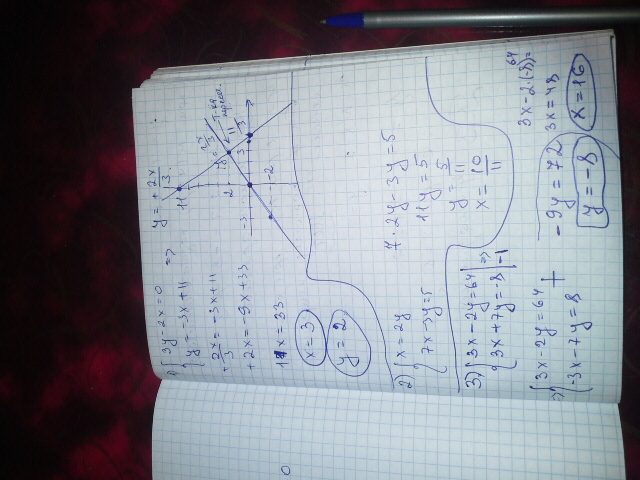 1) { 3y-2x=0 => y = + 2x/3
{ y = -3x+11
+ 2x/3 = -3x+11
+2x = -9x+33
11x = 33
x=3
y=2
11
2
3
-3
-2
11/3
2) { x = 2y 7·2y-3y=5
{ 7x-3y=5 11y=5
y = 5/11
x = 10/11
3) { 3x-2y=64 | =>
{ 3x+7y=-8 | -1
=> { 3x-2y=64 +
{ -3x-7y=8
-9y=72
y=-8
3x-2·(-8)=64
3x=48
x=16